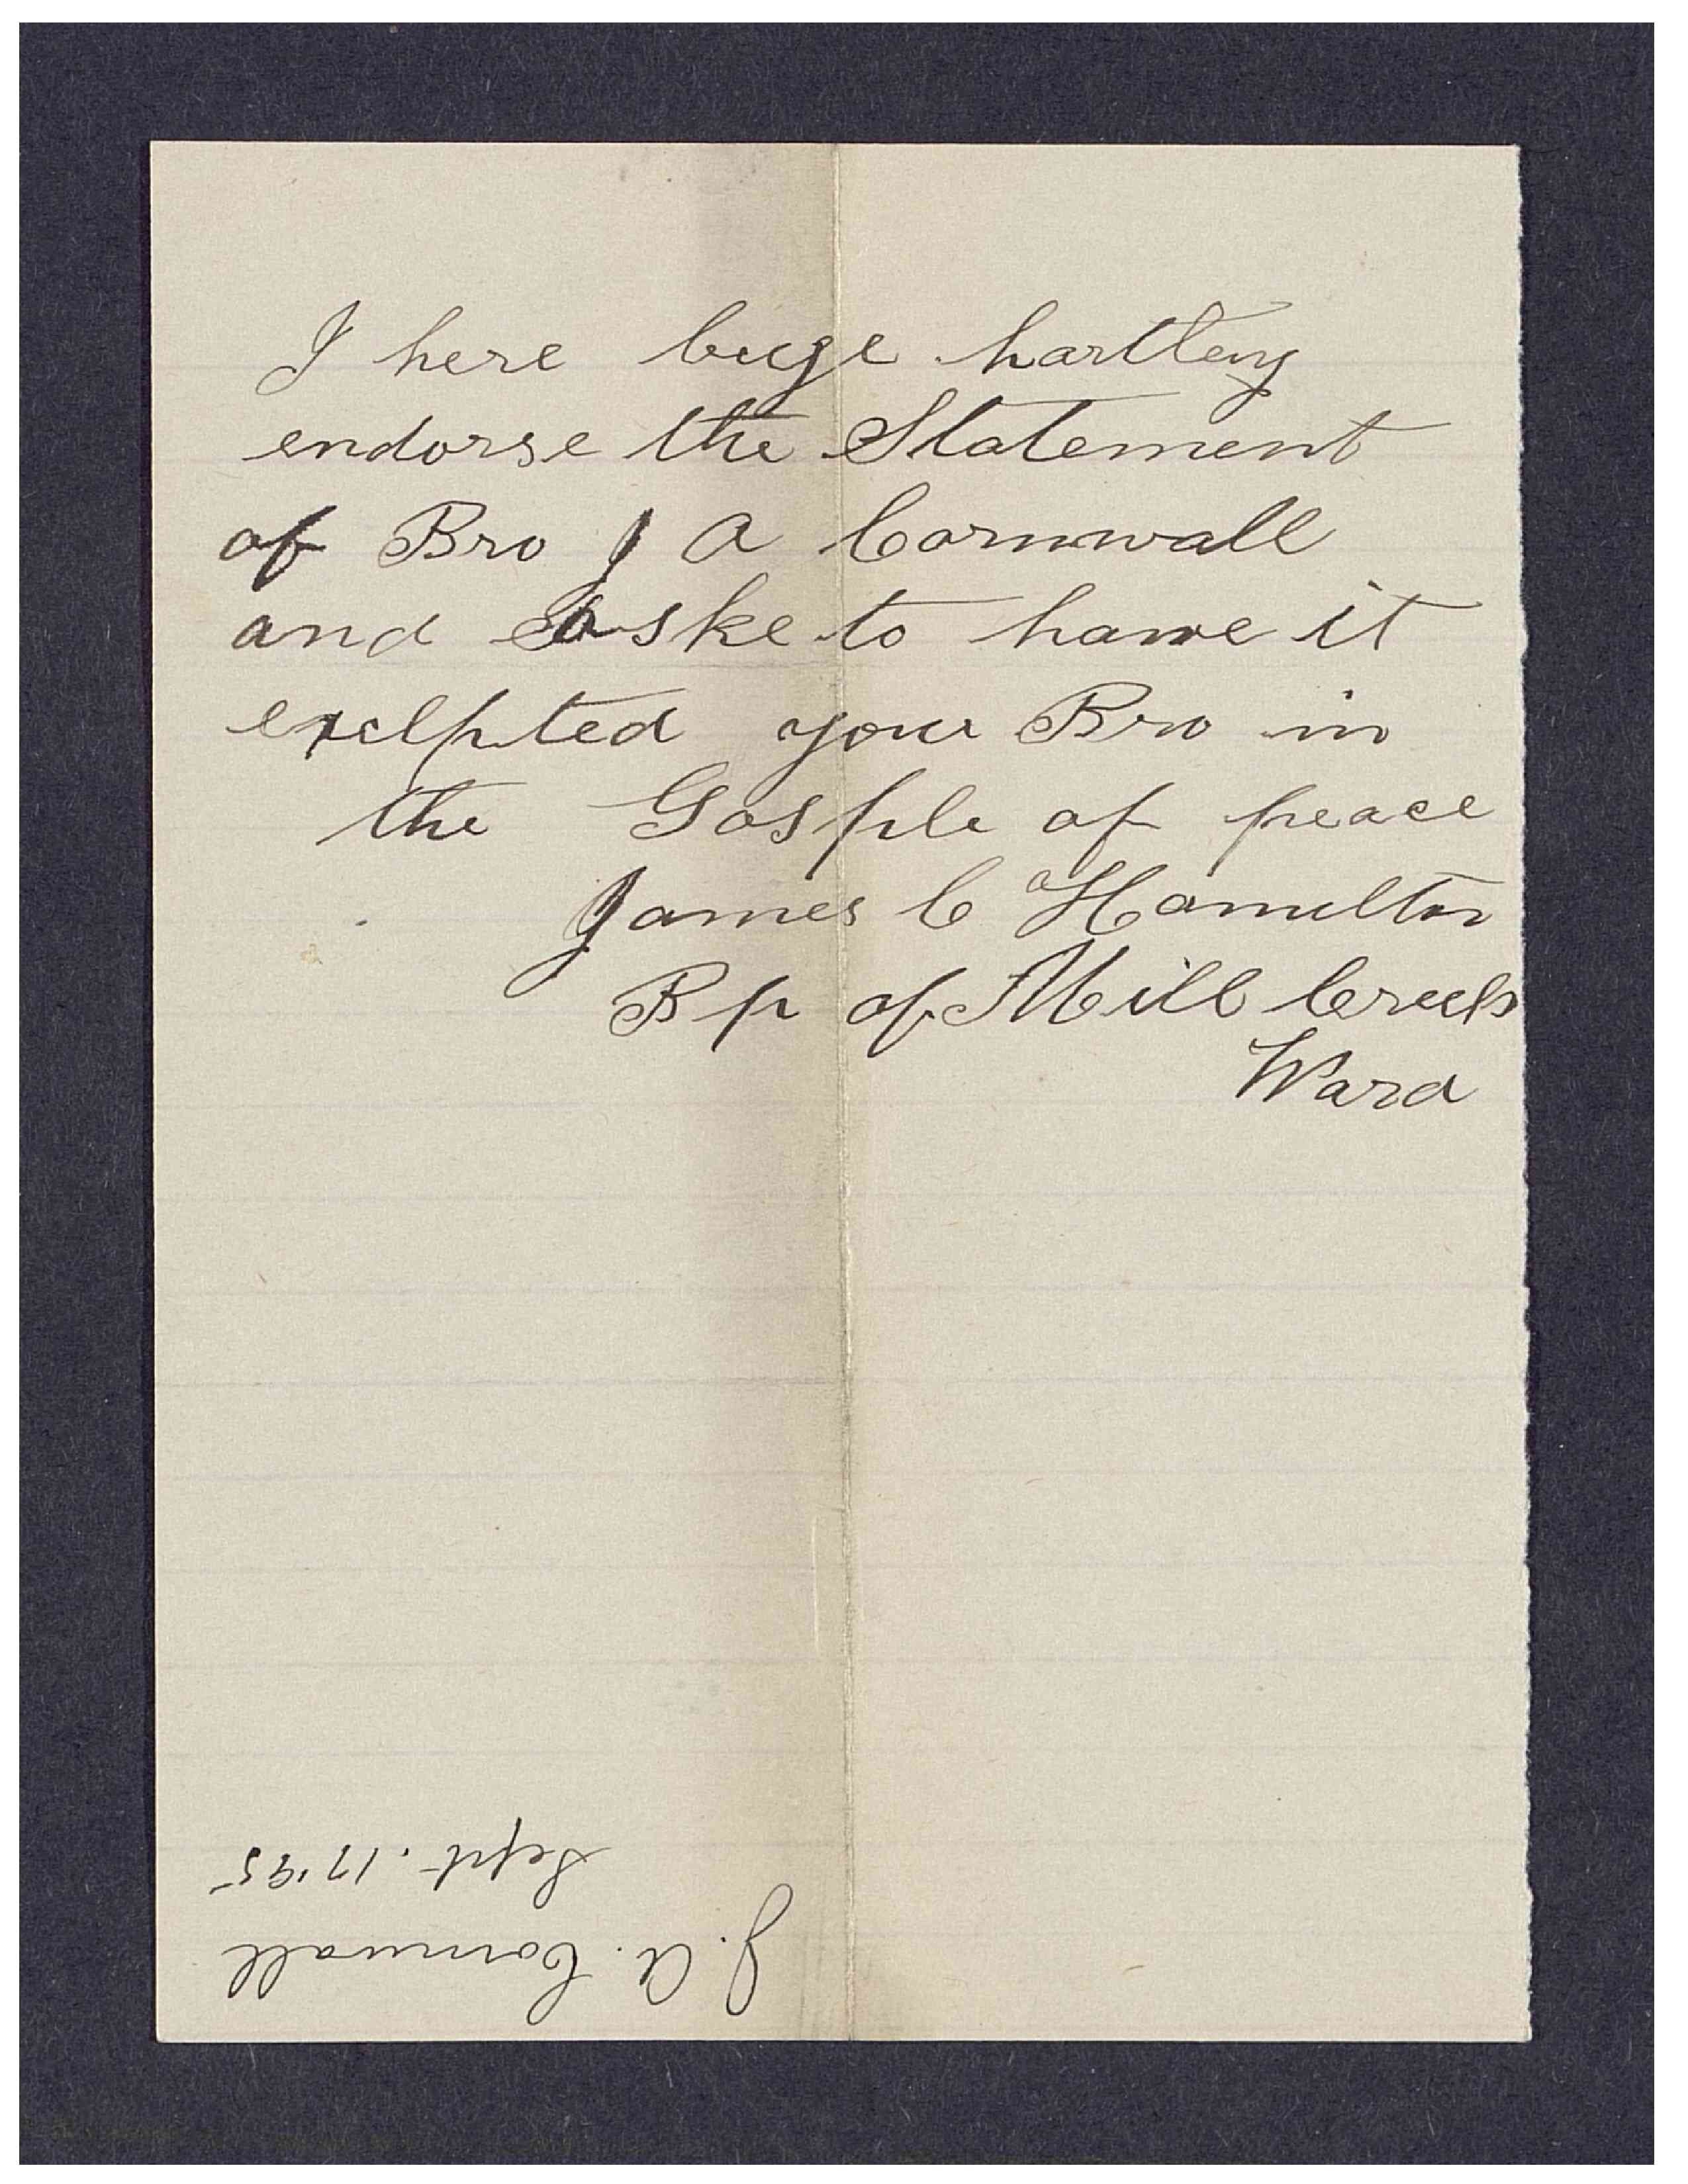 I here buye hartley
endorse the Statement
of Bro J A Cornwall
and aske to hawe it
excelpted your Bro in
the Gosple of peace
James C Hamilton
Bp of Mill Creek
Ward
J. A. Cornwall
Sept. 17 '95